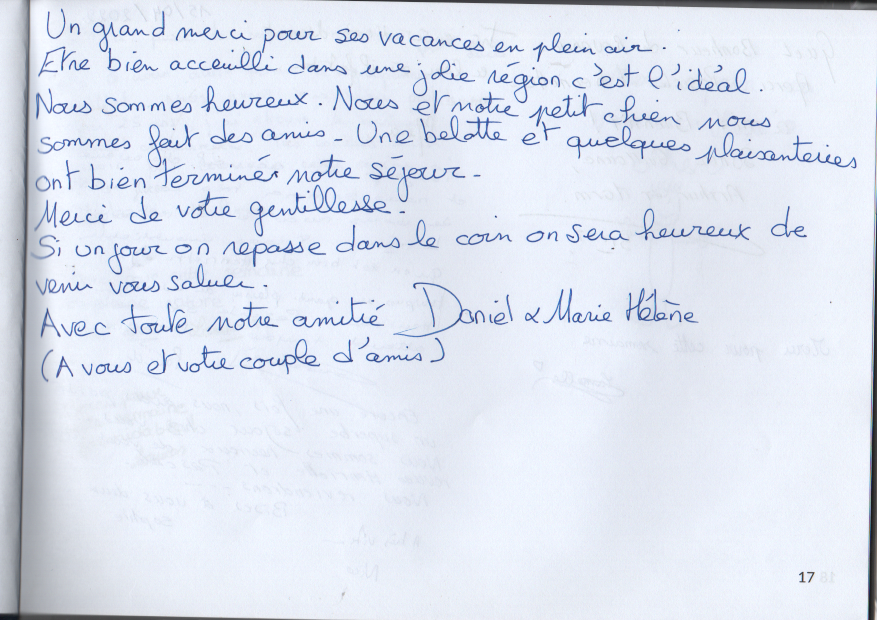 Un grand merci pour ses vacances en plein air.
Etre bien acceuilli dans une jolie région c'est l'idéal.
Nous sommes heureux. Nous et notre petit chien nous
sommes fait des amis. Une belotte et quelques plaisanteries
ont bien terminér notre séjour.
Merci de votre gentillesse.
Si un jour on repasse dans le coin on sera heureux de
venir vous saluer.
Avec toute notre amitié Daniel & Marie Hélène
(A vous et votre couple d'amis)
17